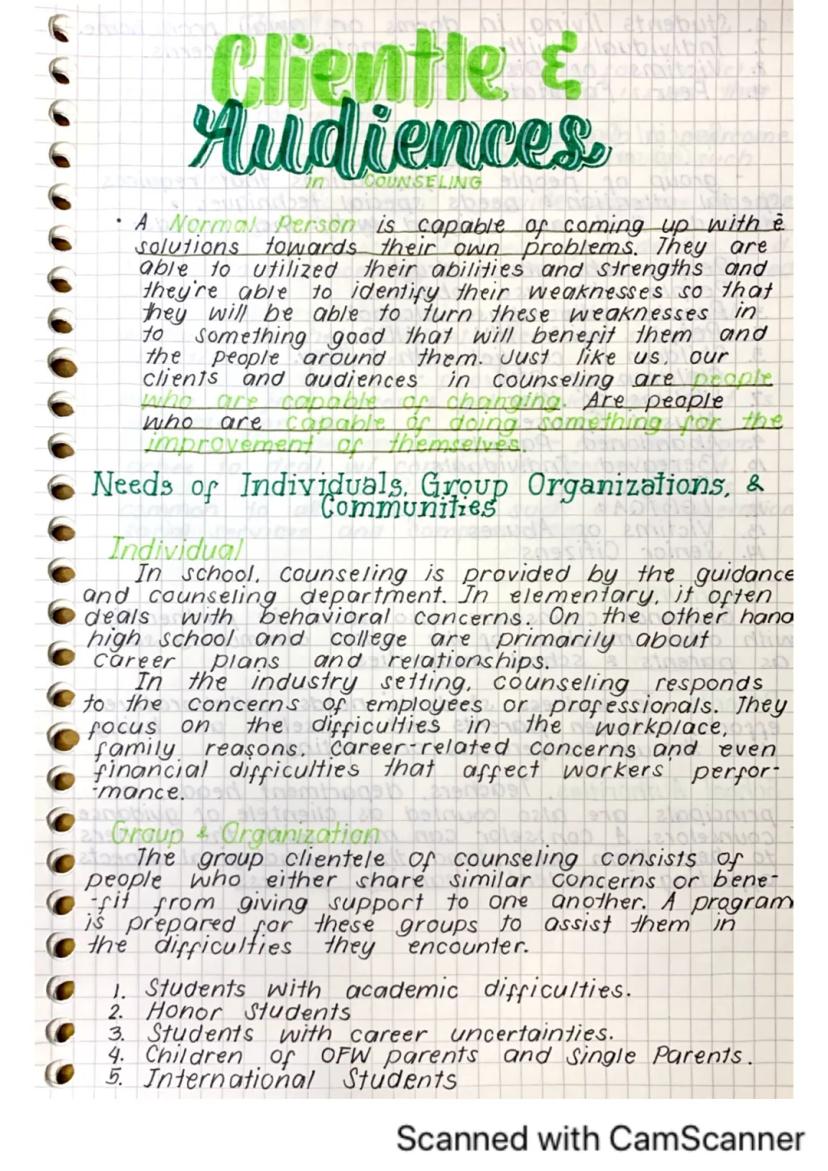 Clientle &
Audiences
in COUNSELING
• A Normal Person is capable of coming up with ē
solutions towards their own problems. They are
able to utilized their abilities and strengths and
they're able to identify their weaknesses so that
they will be able to turn these weaknesses in
to something good that will benefit them and
the people around them. Just like us, our
clients and audiences in counseling are people
who are capable of changing. Are people
who are capable of doing something for the
improvement of themselves.
Needs of Individuals, Group Organizations, &
Communities
Individual
In school, counseling is provided by the guidance
and counseling department. In elementary, it often
deals with behavioral concerns. On the other hand
high school and college are primarily about
career plans and relationships.
In the industry setting, counseling responds
to the concerns of employees or professionals. They
focus on the difficulties in the workplace,
family reasons, career-related concerns and even
financial difficulties that affect workers' perfor-
-mance.
Group & Organization
The group clientele of counseling consists of
people who either share similar concerns or bene-
-fit from giving support to one another. A program
is prepared for these groups to assist them in
the difficulties they encounter.
1. Students with academic difficulties.
2. Honor Students
3. Students with career uncertainties.
4. Children of OFW parents and Single Parents.
5. International Students
Scanned with CamScanner